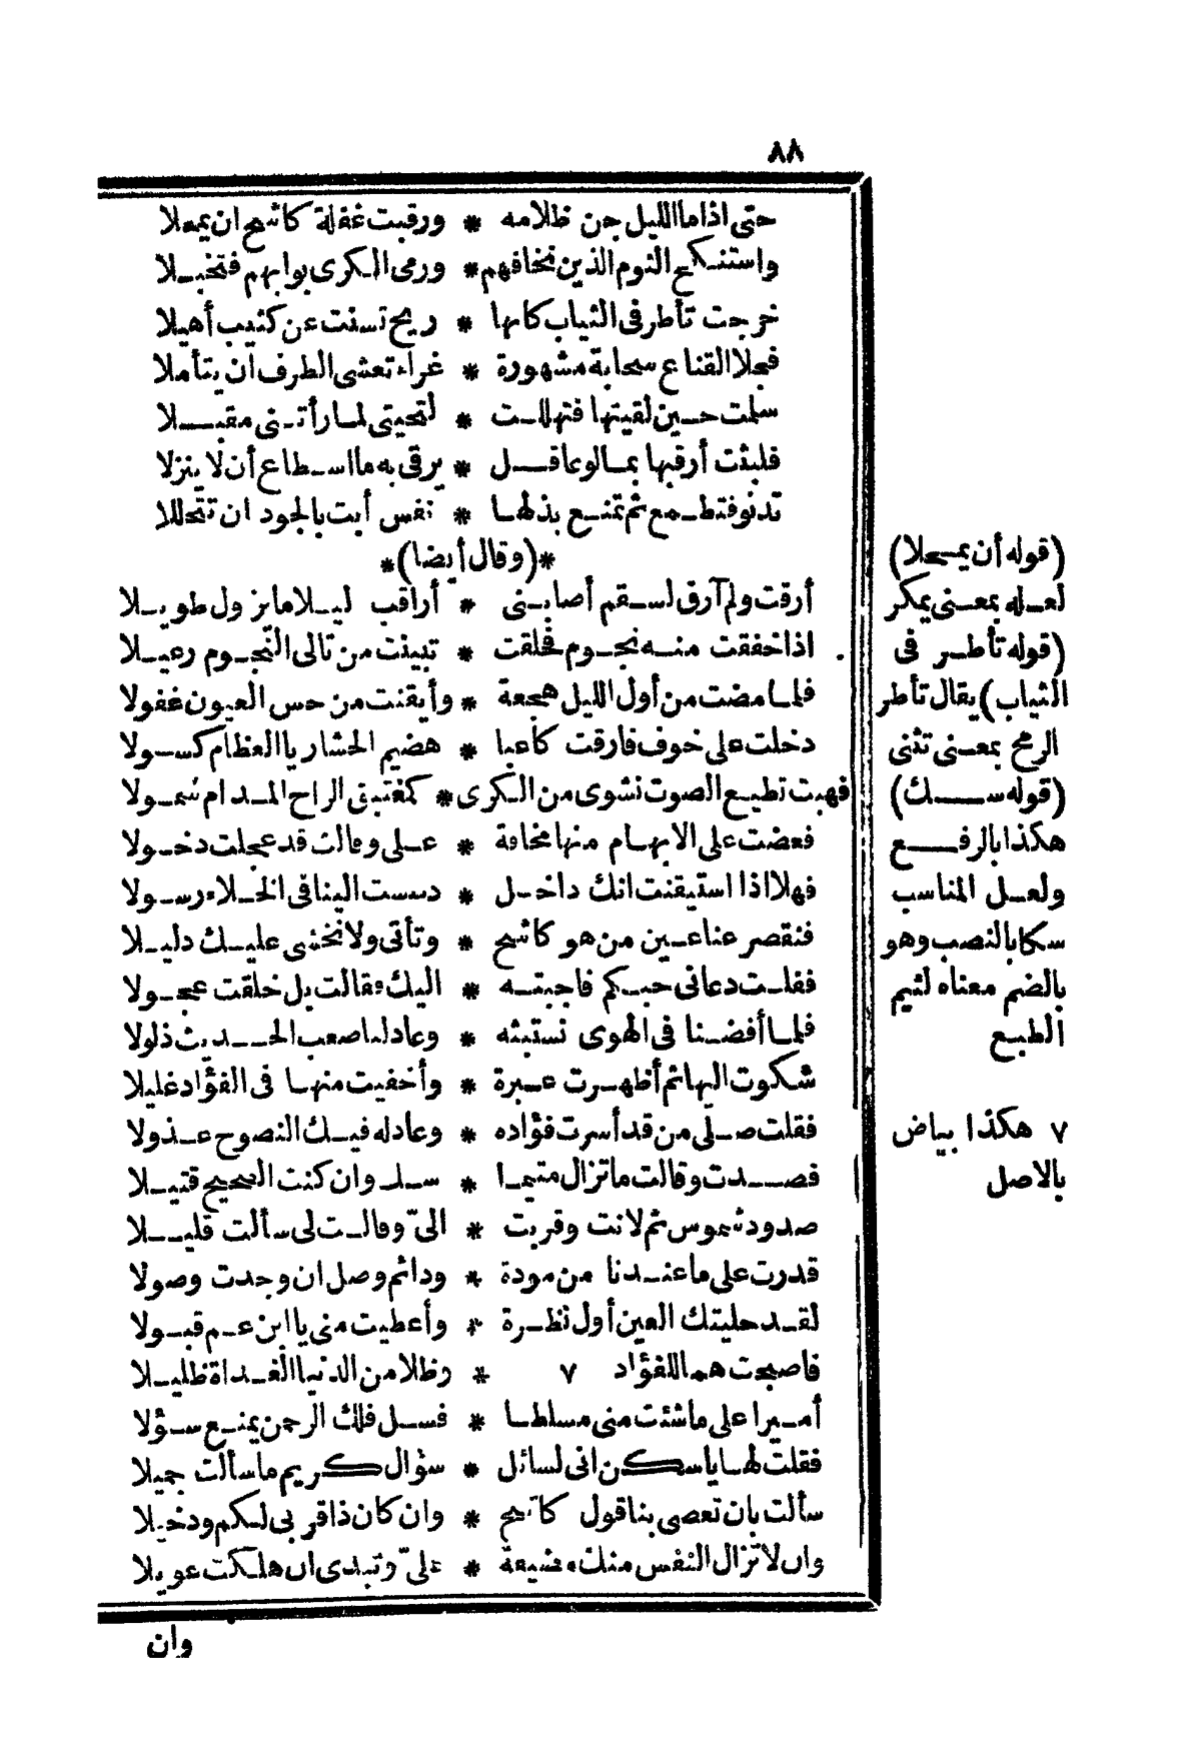 ٨٨
حتى اذا ما الليل جن ظلامه * ورقبت غفلة كاشح ان يمحلا
واستنكح النوم الذين نخافهم * ورمى الكرى بوابهم فتخبلا
خرجت تأطر فى الثياب كانها * ريح تسنت عن كثيب أهيلا
فجلا القناع سحابة مشهورة * غراء تعشى الطرف ان يتأملا
سلمت حين لقيتها فتهللت * لتحيتى لما رأتنى مقبلا
فلبثت أرقيها بما لو عاقل * يرقى به ما اسطاع أن لا ينزلا
تدنو فتطمع ثم تمنع بذلها * نفس أبت بالجود ان تتحللا
*(وقال أيضا)*
أرقت ولم آرق لسقم أصابنى * أراقب ليلا ما يزول طويلا
اذا خفقت منه نجوم فحلقت * تبينت من تالى النجوم رعيلا
فلما مضت من أول الليل هجعة * وأيقنت من حس العيون غفولا
دخلت على خوف فارقت كاعبا * هضيم الحشا ريا العظام كسولا
فهبت تطيع الصوت نشوى من الكرى * كمغتبق الراح المدام شمولا
فعضت على الابهام منها مخافة * على وقالت قد عجلت دخولا
فهلا اذا استيقنت انك داخل * دسست الينا فى الخلاء رسولا
فنقصر عنا عين من هو كاشح * وتأتى ولا نخشى عليك دليلا
فقلت دعانى حبكم فاجبته * اليك فقالت بل خلقت عجولا
فلما أفضنا فى الهوى نستبثه * وعاد لنا صعب الحديث ذلولا
شكوت اليها ثم أظهرت عبرة * وأخفيت منها فى الفؤاد غليلا
فقلت صلى من قد أسرت فؤاده * وعاد له فيك النصوح عذولا
فصدت وقالت ما تزال متيما * سلى وان كنت الصحيح قتيلا
صدود شموس ثم لانت وقربت * الىّ وقالت لى سألت قليلا
قدرت على ما عندنا من مودة * ودائم وصل ان وجدت وصولا
لقد حليتك العين أول نظرة * وأعطيت منى يا ابن عم قبولا
فاصبحت هما للفؤاد ٧ * وظلا من الدنيا الغداة ظليلا
أميرا على ما شئت منى مسلطا * فسل فلك الرحمن يمنع سؤلا
فقلت لها يا سكن انى لسائل * سؤال كريم ما سألت جميلا
سألت بان تعصى بنا قول كاشح * وان كان ذا قربى لكم ودخيلا
وان لا تزال النفس منك مشيعة * علىّ وتبدى ان هلكت عويلا
وان
(قوله أن يمحلا)
لعله بمعنى يمكر
(قوله تأطر فى
الثياب) يقال تأطر
الرمح بمعنى تثنى
(قوله سك)
هكذا بالرفع
ولعل المناسب
سكا بالنصب وهو
بالضم معناه لئيم
الطبع
٧ هكذا بياض
بالاصل